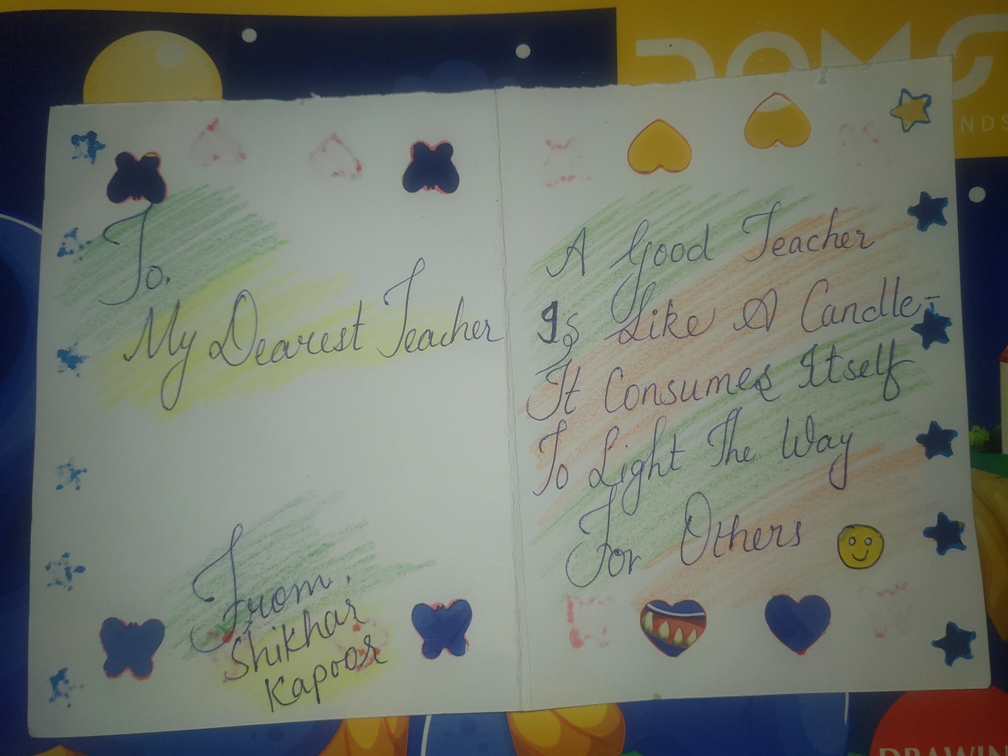 To,
My Dearest Teacher
From,
Shikhar
Kapoor
A Good Teacher
Is Like A Candle-
It Consumes Itself
To Light The Way
For Others
DOMS
NDS
DRAWIN